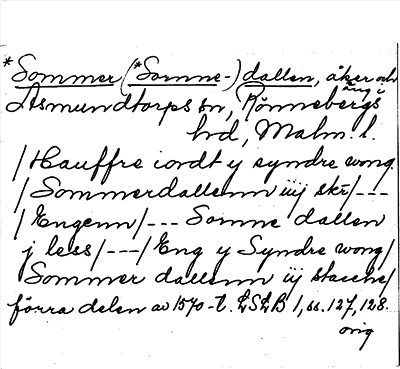 *Sommer (*Somne-) dallen, åker och
äng i
Asmundtorps sn, Rönnebergs
hd, Malm. l.
/Hauffre iordt y syndre wong
/Sommerdallenn iij skr/---
/Engenn/--- Somne dallen
j less/---/Eng y Syndre wong/
Sommer dallenn iij stacche/
förra delen av 1570-t. LSLB 1, ss. 127, 128.
orig